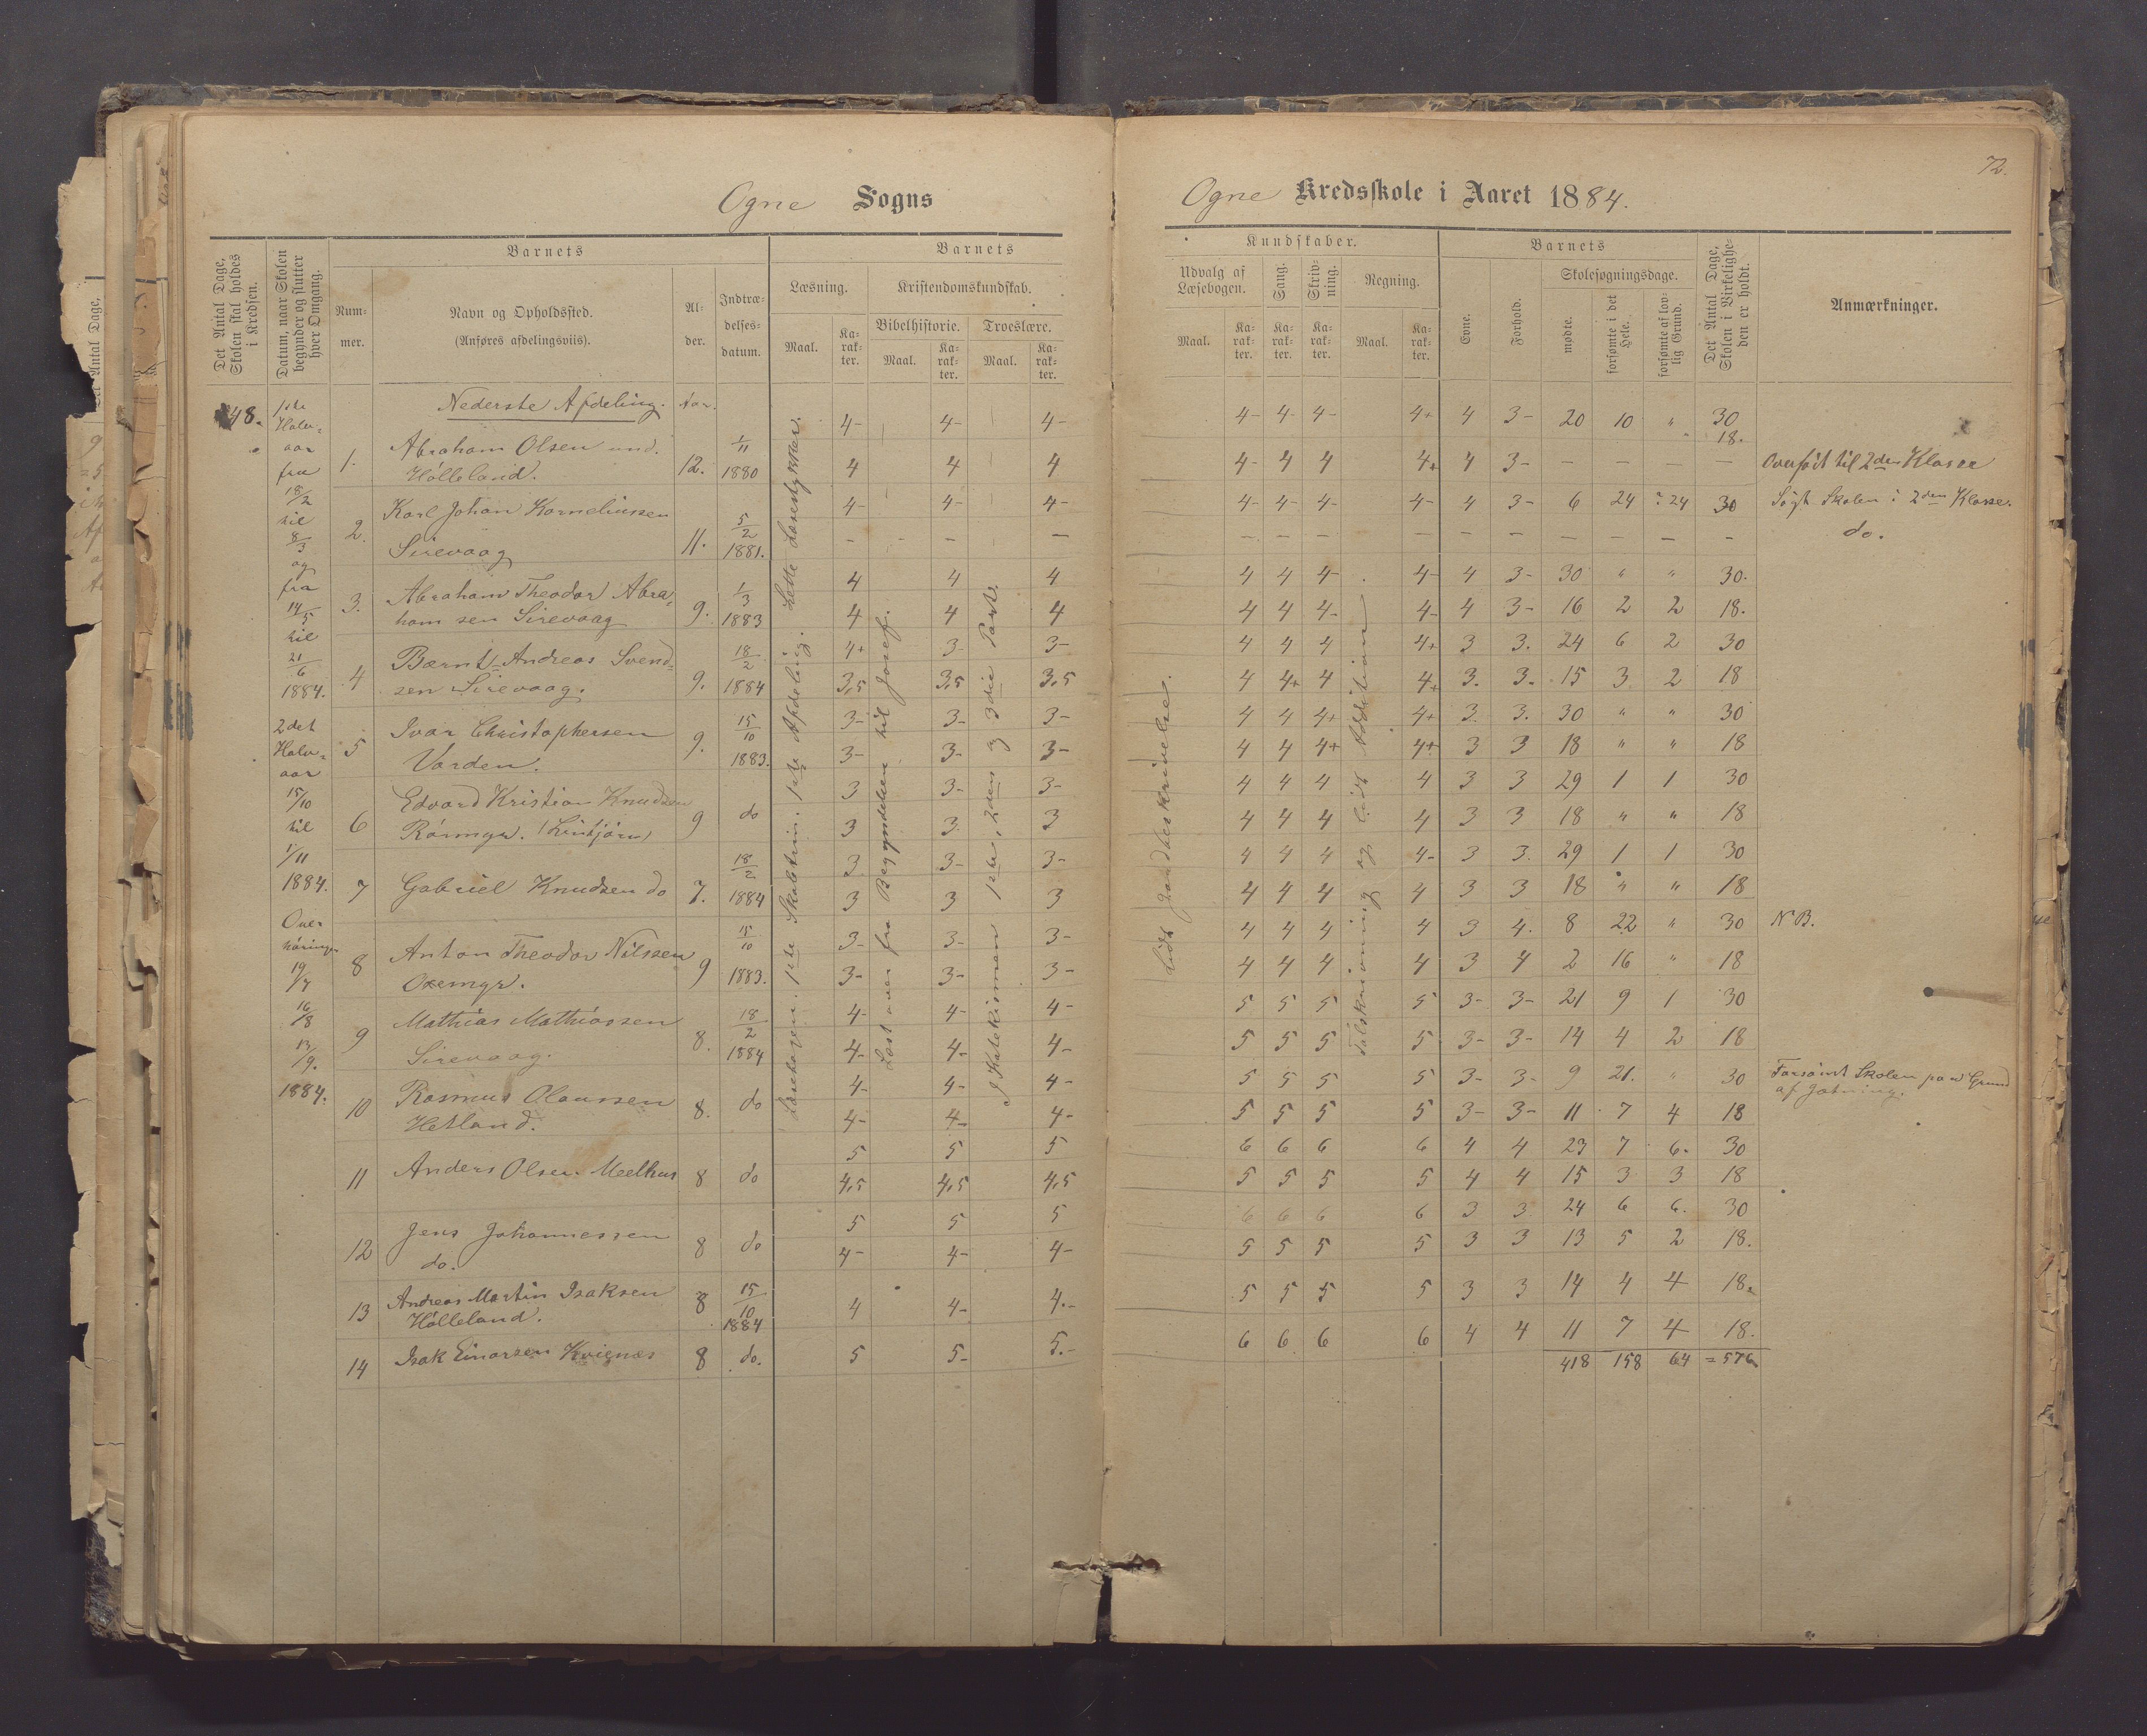 72.
Ogne Sogns
Ogne Kredsskole i Aaret 1884.
Det Antal Dage, Skolen skal holdes i Kredsen.
Datum, naar Skolen begynder og slutter hver Omgang.
Barnets
Num-
mer.
Navn og Opholdssted.
(Anføres afdelingsviis).
Al-
der.
Indtræ-
delses-
datum.
Barnets
Læsning.
Kristendomskundskab.
Bibelhistorie.
Troeslære.
Maal.
Ka-
rak-
ter.
Maal.
Ka-
rak-
ter.
Maal.
Ka-
rak-
ter.
Kundskaber.
Udvalg af
Læsebogen.
Sang.
Skriv-
ning.
Regning.
Maal.
Ka-
rak-
ter.
Ka-
rak-
ter.
Ka-
rak-
ter.
Maal.
Ka-
rak-
ter.
Barnets
Evne.
Forhold.
Skolesøgningsdage.
mødte.
forsømte i det Hele.
forsømte af lov-
lig Grund.
Det Antal Dage, Skolen i Virkelighe-
den er holdt.
Anmærkninger.
48.
1ste
Halv-
aar
fra
18/2
til
8/3
og
fra
14/5
til
21/6
1884.
2det
Halv-
aar
15/10
til
1/11
1884.
Over
høringer
19/7
16/8
13/9.
1884.
Nederste Afdeling. Aar.
4- 4- 4- 4- 4- 4- 4+ 4 3- 20 10 " 30
1. Abraham Olsen und. Hölleland. 12. 1/11 1880 4 4 4 4- 4 4 4+ 4 3- — — — — 18.
Overført til 2den Klasse
2. Karl Johan Korneliussen Sirevaag 11. 5/2 1881. 4- 4- 4- 4- 4- 4- 4- 4 3- 6 24 24 30
Søgt Skolen i 2den Klasse.
do.
3. Abraham Theodor Abra-
hamsen Sirevaag 9. 1/3 1883 4 4 4 4 4 4- 4- 4 3- 30 " " 30.
4 4 4 4 4 4- 4- 4 3- 16 2 2 18.
4 Bærnt Andreas Svend-
sen Sirevaag. 9. 18/2 1884 4+ 3- 3- 4 4 4 4+ 3 3. 24 6 2 30
3,5 3,5 3,5 4 4+ 4 4+ 3. 3. 15 3 2 18
5 Ivar Christophersen
Varden. 9. 15/10 1883. 3- 3- 3- 4 4 4+ 4+ 3. 3. 30 " " 30
3- 3- 3- 4 4 4+ 4+ 3 3 18 " " 18
6 Edvard Kristian Knudsen
Rörmyr. 9 do 3 3- 3- 4 4 4 4 3 3 29 1 1 30
3 3. 3 4 4 4 4 3 3 18 " " 18
7 Gabriel Knudsen do 7. 18/2 1884 3 3- 3- 4 4 4 4- 3 3. 29 1 1 30
3 3 3 4 4 4 4 3 3 18 " " 18
8 Anton Theodor Nilssen
Oxemyr. 9 15/10 1883. 3- 3- 3- 4 4 4 4 3 4. 8 22 " 30 NB.
3- 3- 3- 4 4 4 4 3 4 2 16 " 18
9 Mathias Mathiassen
Sirevaag. 8. 18/2 1884 4- 4- 4- 5 5 5 5 3- 3- 21 9 1 30
4- 4- 4- 5 5 5 5 3- 3- 14 4 2 18
10 Rasmus Olaussen
Hetland. 8. do 4- 4- 4- 5 5 5 5 3- 3- 9 21. " 30
Forsømt Skolen paa Grund
af
4- 4- 4- 5 5 5 5 3- 3- 11 7 4 18
11 Anders Olsen Meelhus 8 do 5 5 5 6 6 6 6 4 4 23 7 6. 30
4,5 4,5 4,5 5 5 5 5 4 4 15 3 3 18
12 Jens Johannessen
do. 8 do 5 5 5 6 6 6 6 3 3 24 6 6. 30
4- 4- 4- 5 5 5 5 3 3 13 5 2 18.
13 Andreas Martin Isaksen
Hölleland. 8 15/10 1884 4 4- 4.- 5 5 5 5 3 3 14 4 4 18.
14 Isak Einarsen Kvienes 8 do. 5 5- 5.- 6 6 6 6 4 4 11 7 4 18.
418 158 64 = 576
Læsebogen. 1ste Skoletrin. 1ste Afdeling. Lette Læsestykker.
Læst over fra Begyndelsen til Josef.
I Katekismen 1ste, 2den og 3die Part.
Lidt Haandskrivelse.
Talskrivning og lidt Addition